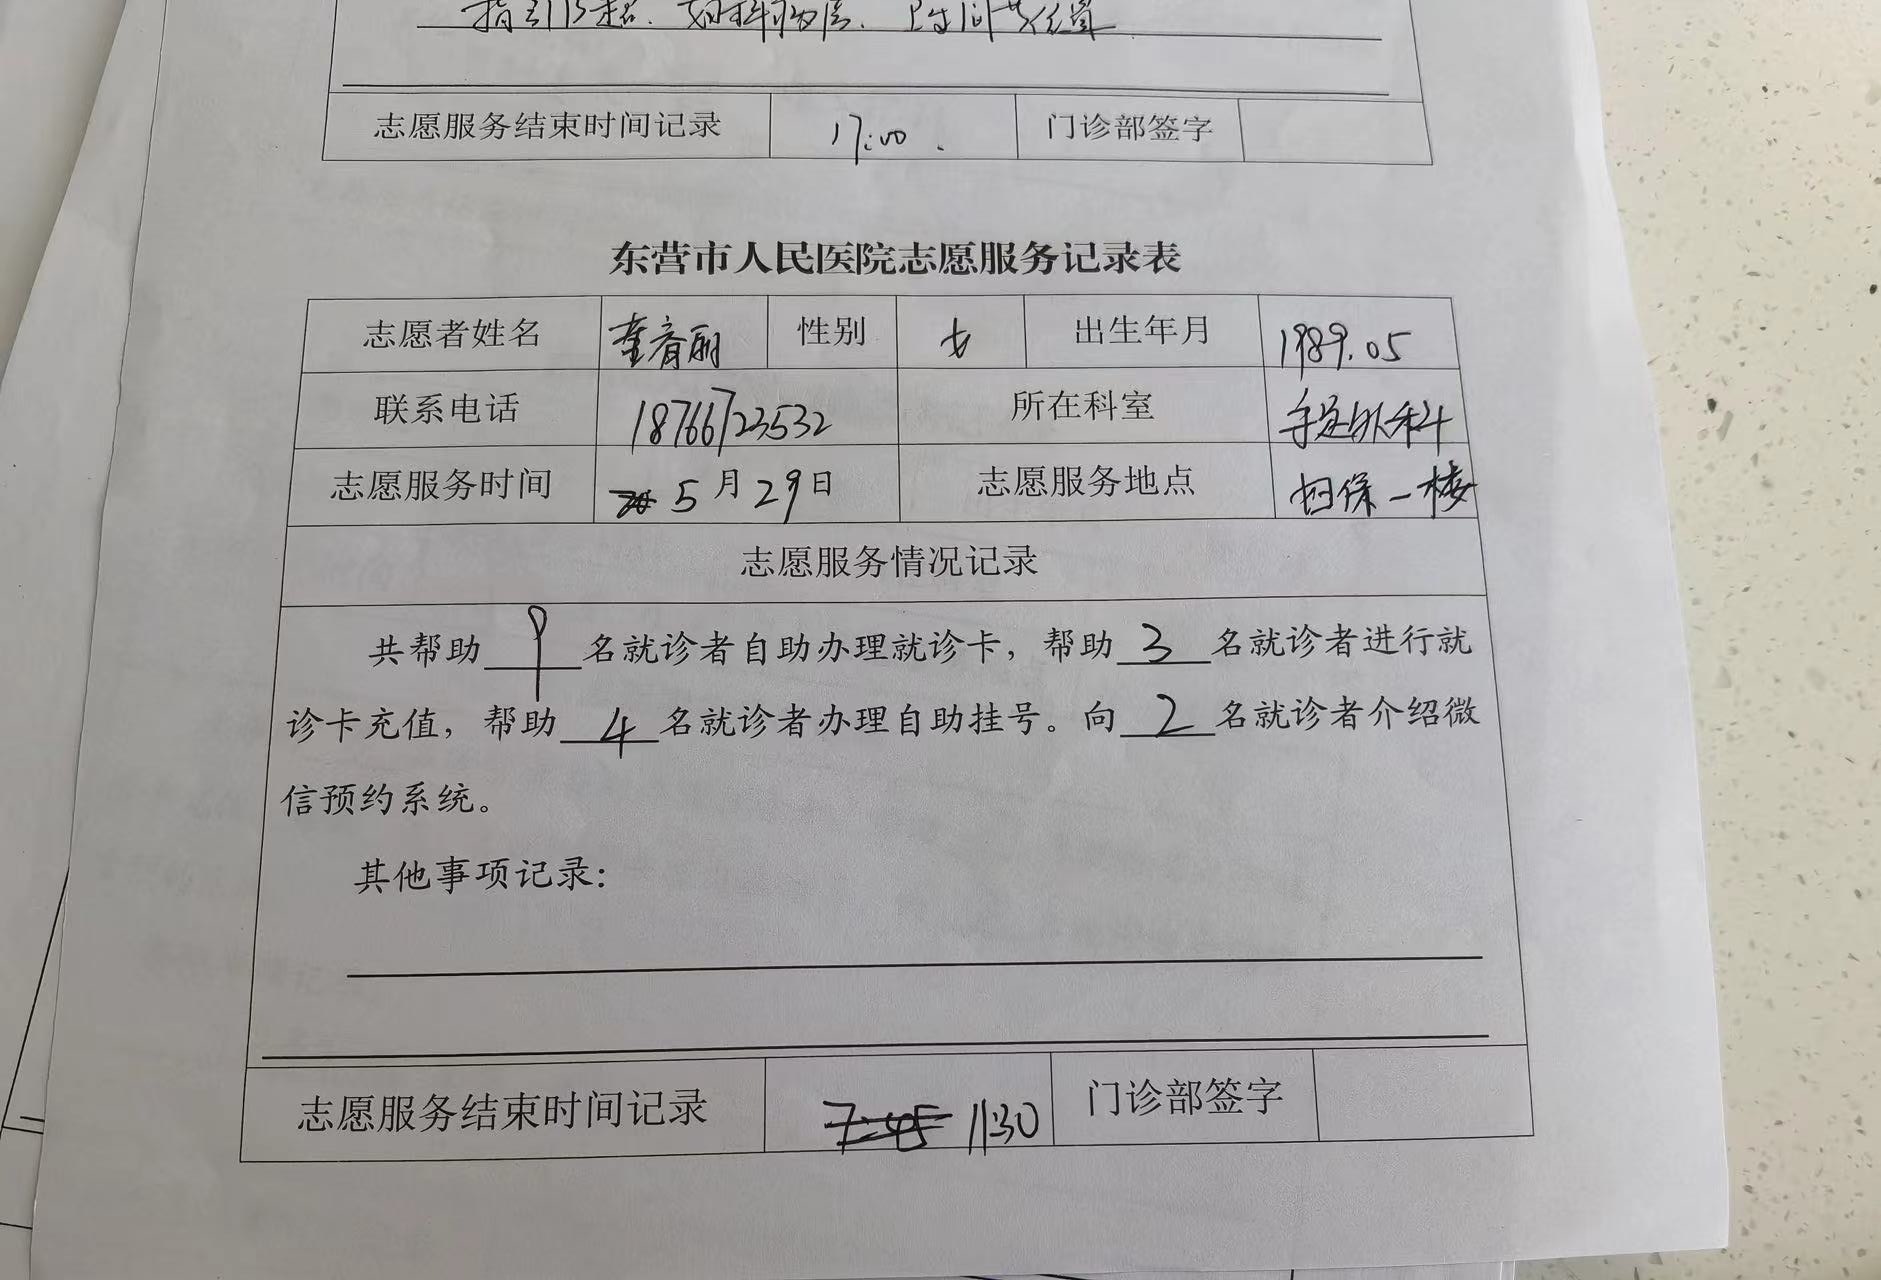 指引B超、妇科病房、卫生间等位置
志愿服务结束时间记录 17:00. 门诊部签字
东营市人民医院志愿服务记录表
志愿者姓名 董春丽 性别 女 出生年月 1989.05
联系电话 18766723532 所在科室 手足外科
志愿服务时间 5月29日 志愿服务地点 妇保一楼
志愿服务情况记录
共帮助 9 名就诊者自助办理就诊卡，帮助 3 名就诊者进行就
诊卡充值，帮助 4 名就诊者办理自助挂号。向 2 名就诊者介绍微
信预约系统。
其他事项记录：
志愿服务结束时间记录 7:45 11:30 门诊部签字